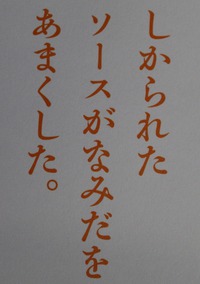 しかられた
ソースがなみだを
あまくした。